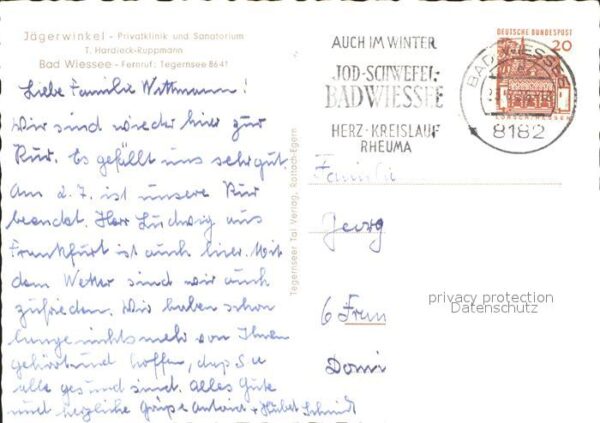 Jägerwinkel - Privatklinik und Sanatorium
T. Hardieck-Ruppmann
Bad Wiessee - Fernruf: Tegernsee 8641
Liebe Familie Wittmann!
Wir sind wieder hier zur
Kur. Es gefällt uns sehr gut
Am 2.7. ist unsere Kur
beendet. Herr Ludwig aus
Frankfurt ist auch hier. Mit
dem Wetter sind wir auch
zufrieden. Wir haben schon
lange nichts mehr von Ihnen
gehört und hoffen, daß Sie
alle gesund sind. Alles Gute
und herzliche Grüße Antonie + Hubert Schmidt
Tegernseer Tal Verlag, Rottach-Egern
AUCH IM WINTER
JOD-SCHWEFEL-
BAD WIESSEE
HERZ·KREISLAUF
RHEUMA
DEUTSCHE BUNDESPOST
20
BAD WIESSEE
8182
Familie
Georg
6 Fran
Domi
privacy protection
Datenschutz